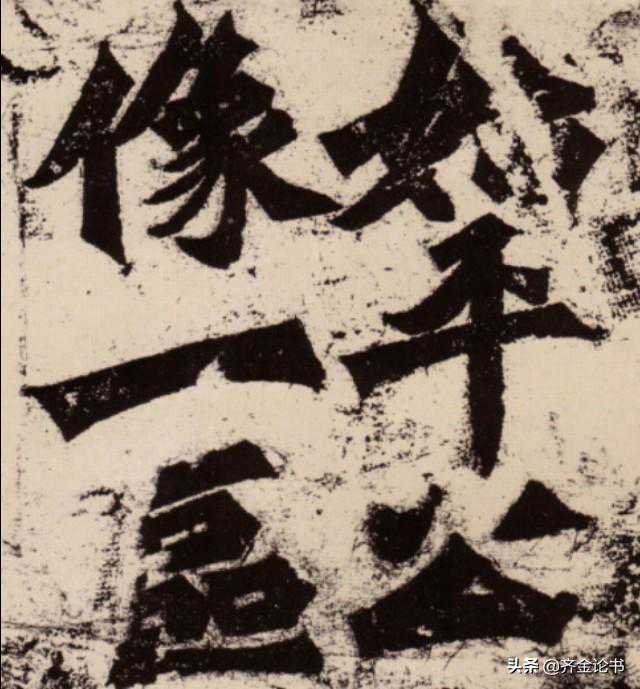 始平公
像一區
头条 @齐金论书